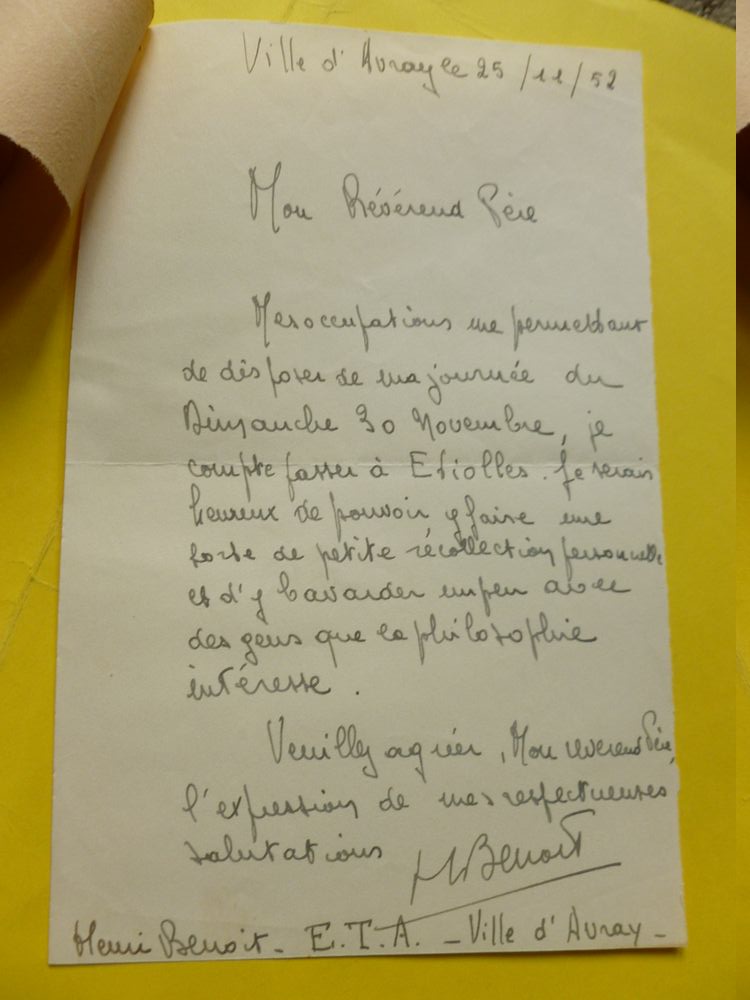 Ville d'Avray le 25/11/52
Mon Révérend Père
Mes occupations me permettant
de disposer de ma journée du
Dimanche 30 Novembre, je
compte passer à Etiolles. Je serais
heureux de pouvoir y faire une
sorte de petite récollection personnelle
et d'y bavarder un peu avec
des gens que la philosophie
intéresse.
Veuillez agréer, Mon révérend Père,
l'expression de mes respectueuses
salutations
HBenoit
Henri Benoit - E.T.A. - Ville d'Avray -